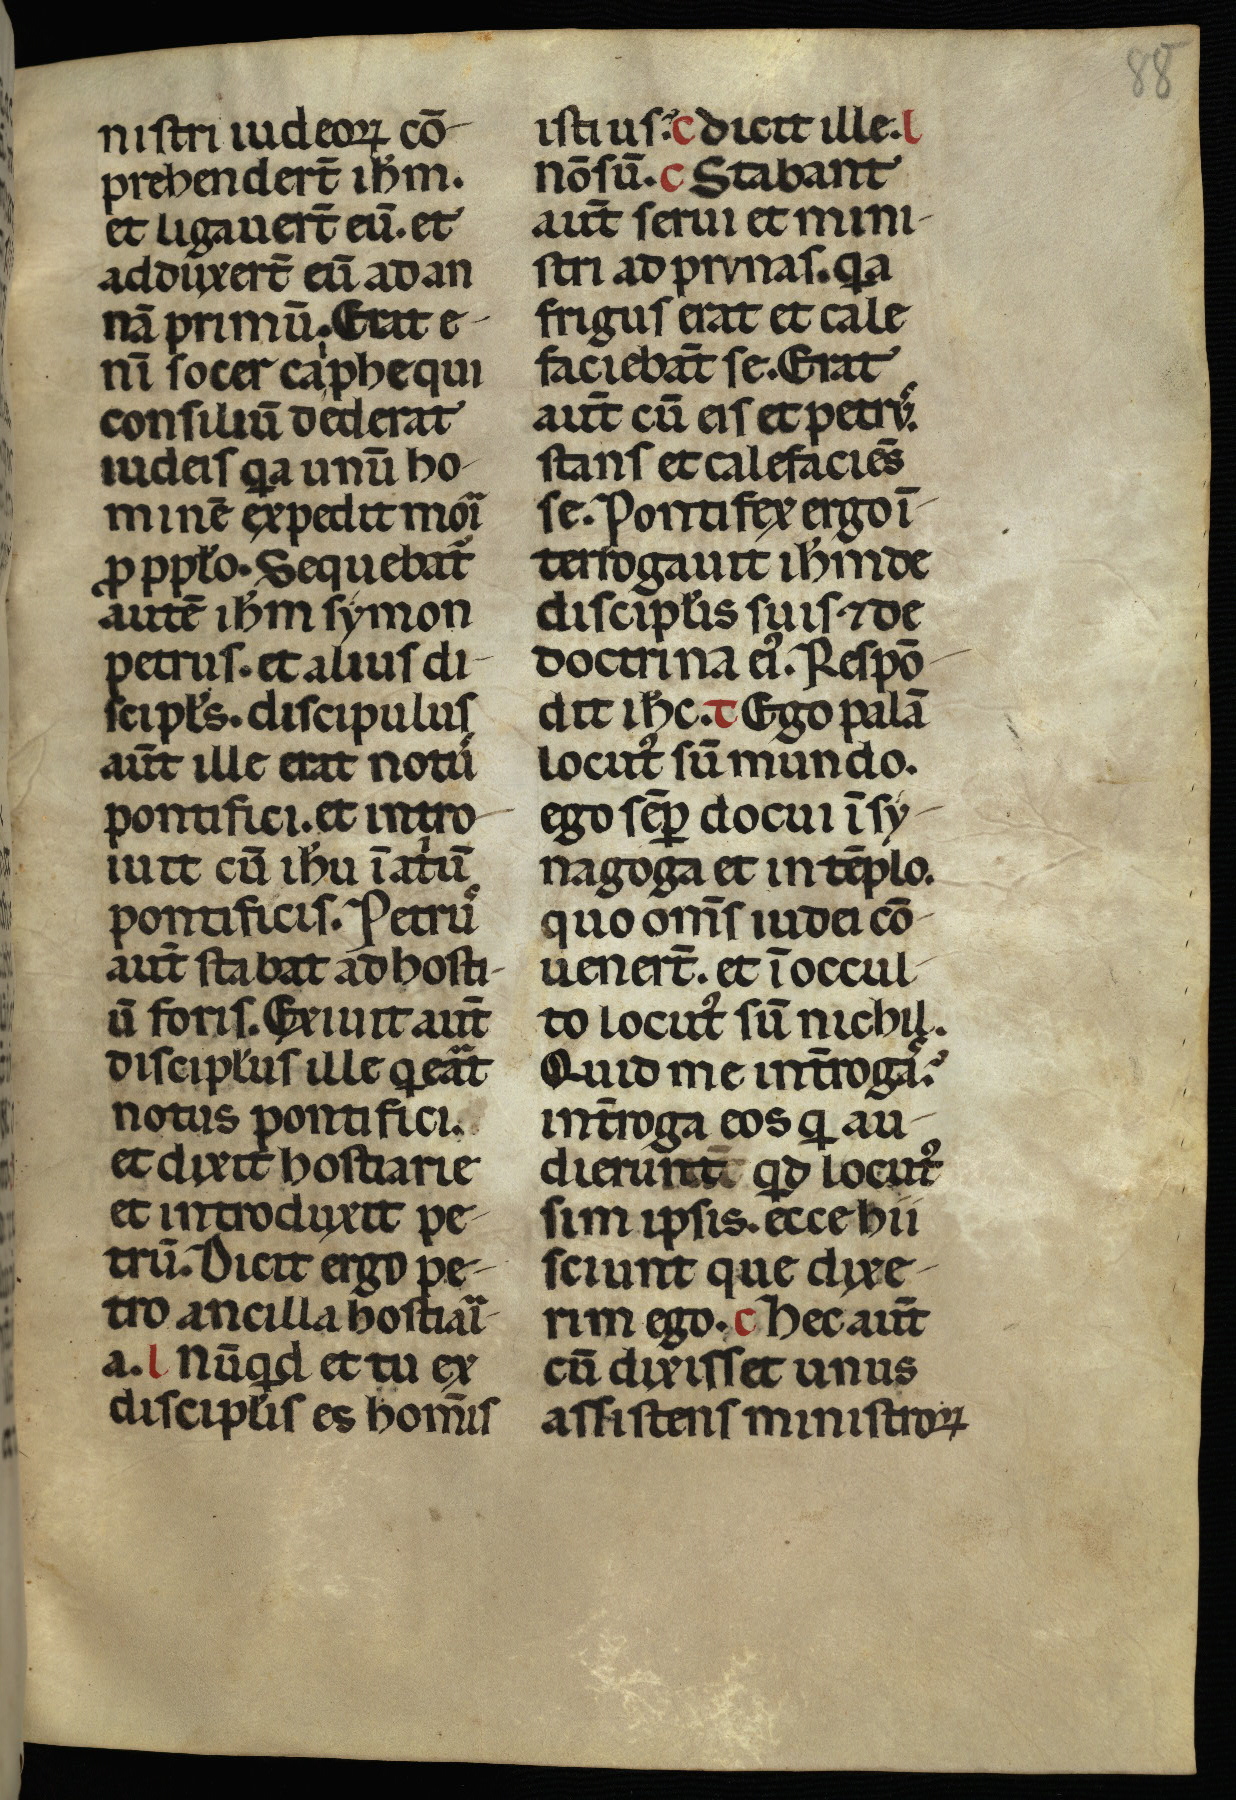 88
nistri iudeoꝝ cō-
prehendert̄ ih̄m.
et ligauert̄ eū. et
adduxert̄ eū ad an
nā primū. Erat e-
nī socer caiphe qui
consiliū dederat
iudeis qͥa unū ho-
minē expedit moͥi
ꝓ ppl̄o. Sequebat᷑
autē ih̄m symon
petrus. et alius di-
scipl̄s. discipulus
aūt ille erat notꝰ
pontifici. et intro-
iuit cū ih̄u ī atͥū
pontificis. Petrꝰ
aūt stabat ad hosti-
ū foris. Exiuit aūt
discipl̄us ille q̇ eᷓt
notus pontifici.
et dixit hostiarie
et introduxit pe-
trū. Dicit ergo pe-
tro ancilla hostiaͥi-
a. l Nūqͥd et tu ex
discipl̄is es hoīs
istius? c dicit ille. l
nō sū. c Stabant
aūt serui et mini-
stri ad prunas. qͥa
frigus erat et cale
faciebāt se. Erat
aūt cū eis et petrꝰ.
stans et calefaciēs
se. Pontifex ergo ī-
terrogauit ih̄m de
discipl̄is suis ⁊ de
doctrina eiꝰ. Respō-
dit ih̄c. t Ego palā
locutꝰ sū mundo.
ego sēꝑ docui ī sy-
nagoga et in tēplo.
quo om̄s iudei cō-
uenert̄. et ī occul-
to locutꝰ sū nichil.
Quid me int̄rogas?
int̄roga eos qͥ au-
dierunt qͥd locutꝰ
sim ipsis. ecce hii
sciunt que dixe-
rim ego. c hec aūt
cū dixisset unus
assistens ministroꝝ